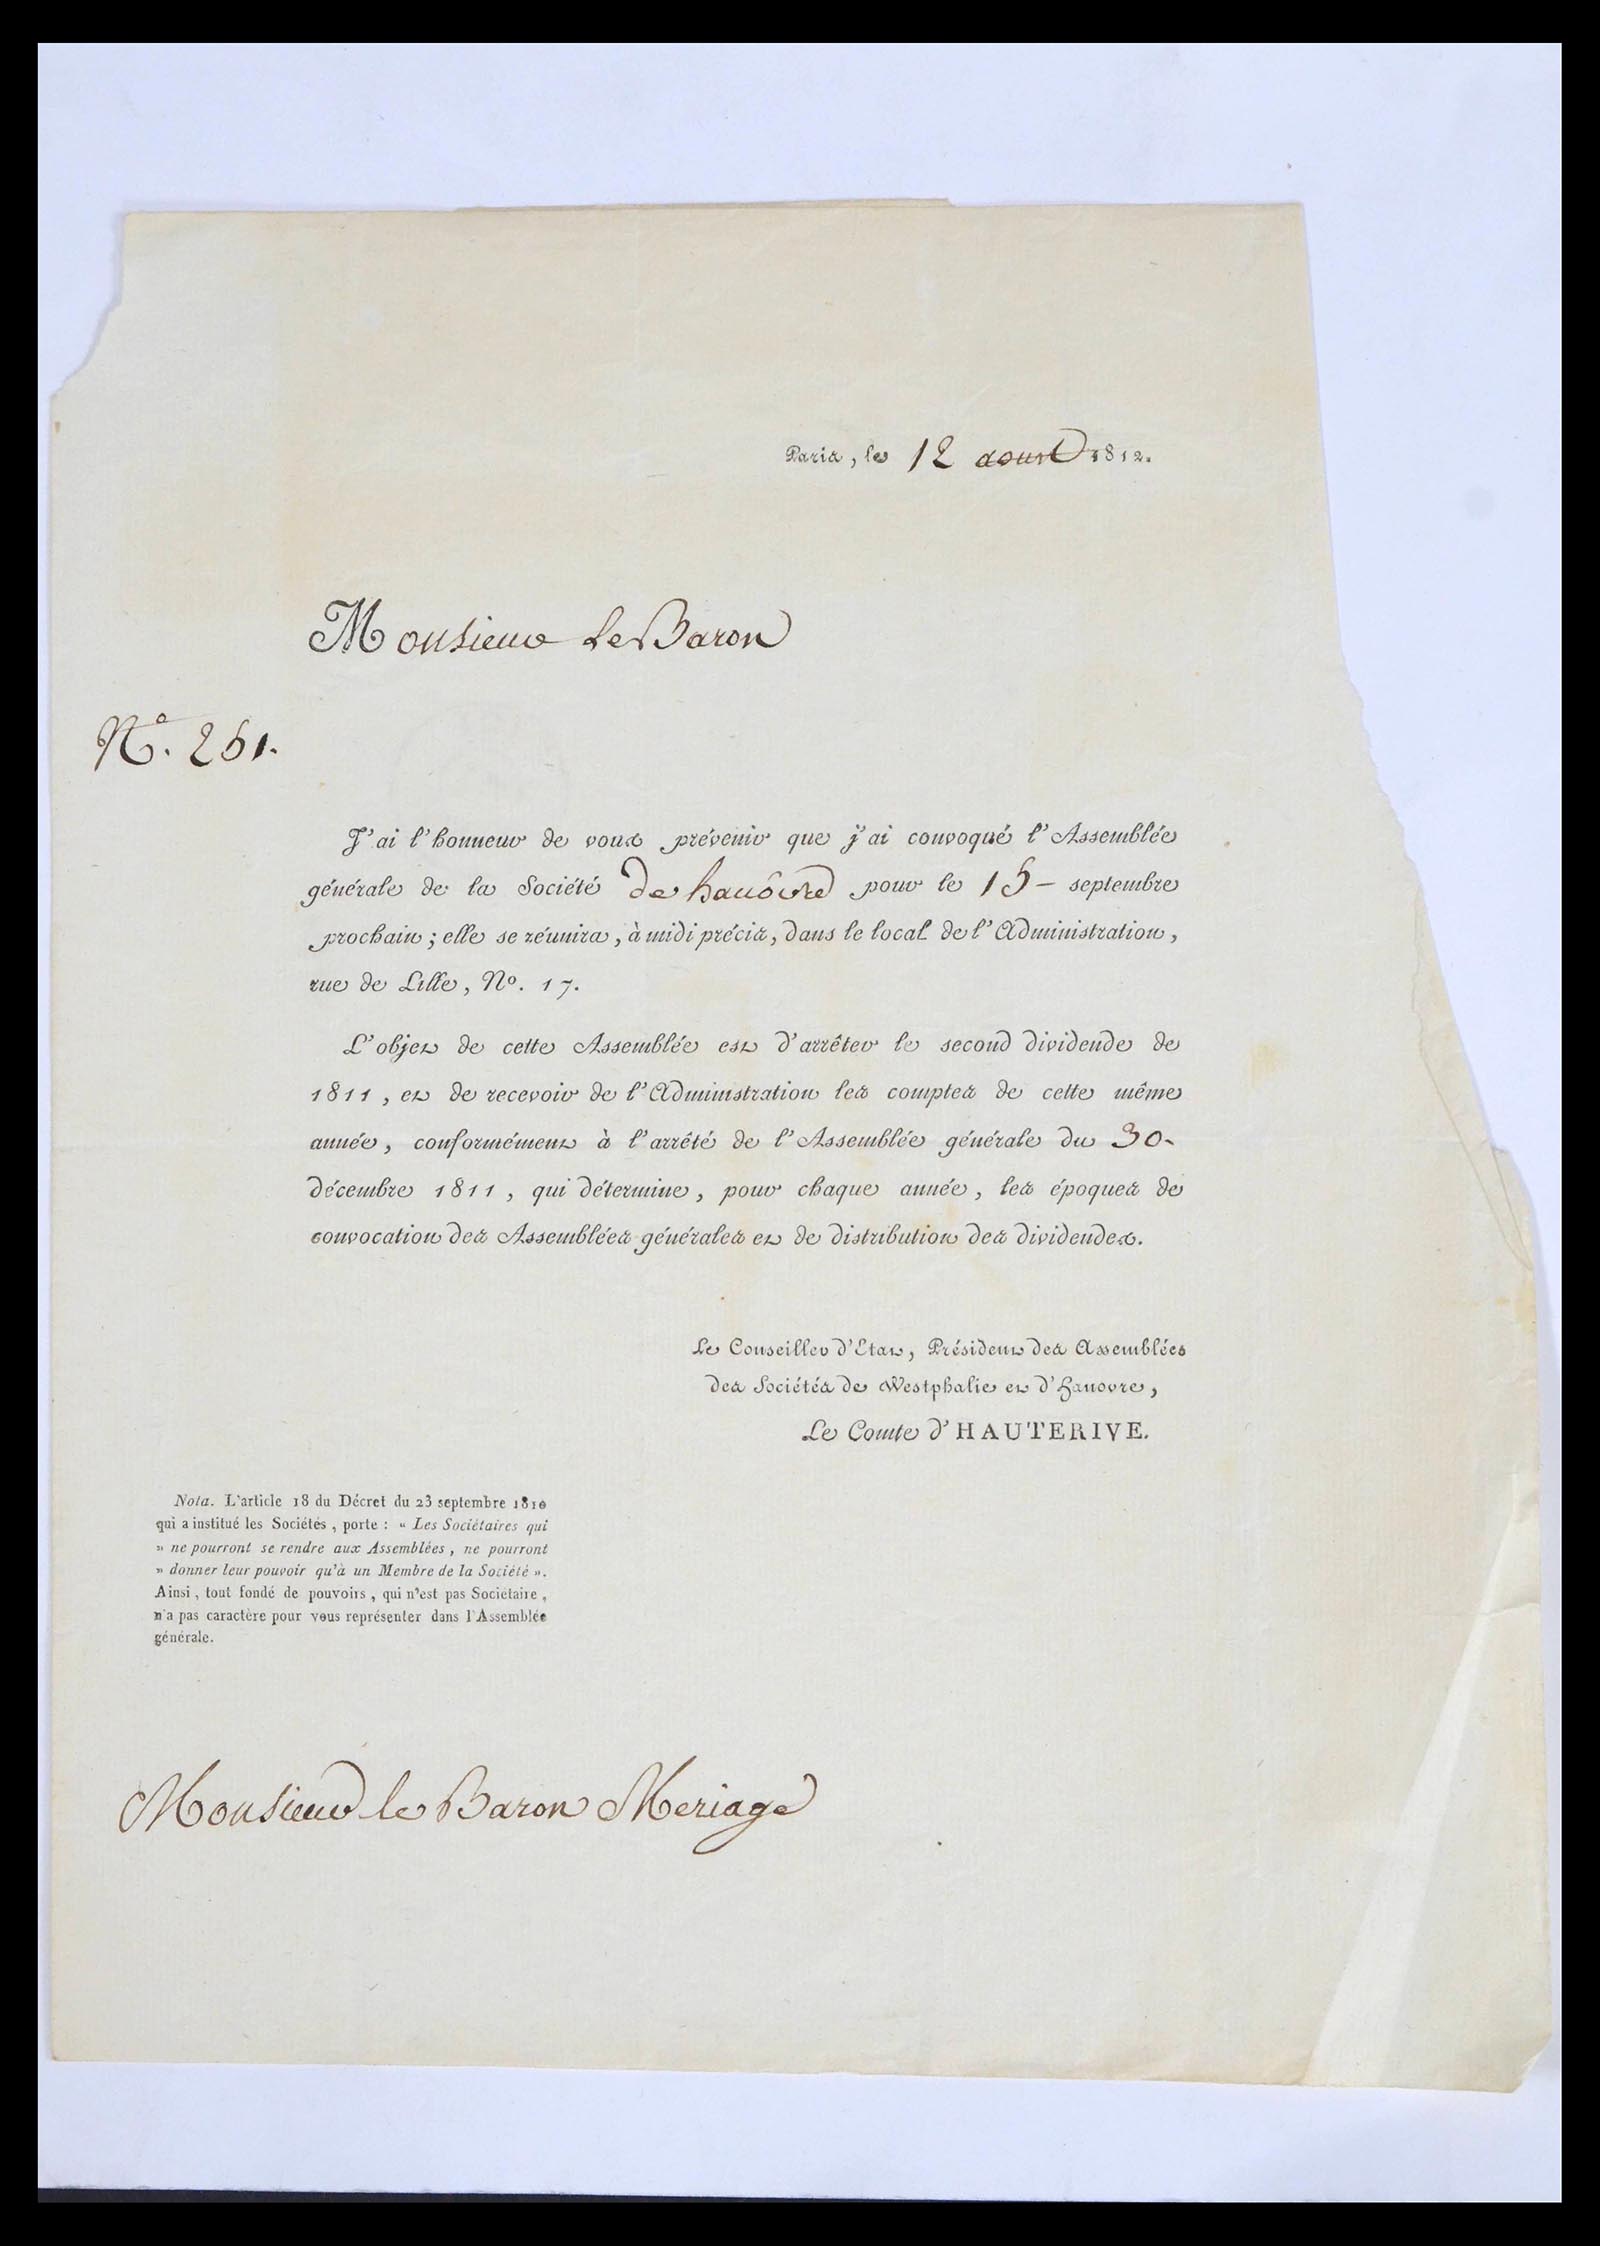 Paris, le 12 aoust 1812.
Monsieur le Baron
N.° 251.
J'ai l'honneur de vous prévenir que j'ai convoqué l'Assemblée
générale de la Société de hanôvre pour le 15 - septembre
prochain ; elle se réunira, à midi précis, dans le local de l'Administration,
rue de Lille, No. 17.
L'objet de cette Assemblée est d'arrêter le second dividende de
1811, et de recevoir de l'Administration les comptes de cette même
année, conformément à l'arrêté de l'Assemblée générale du 30-
décembre 1811, qui détermine, pour chaque année, les époques de
convocation des Assemblées générales et de distribution des dividendes.
Le Conseiller d'Etat, Président des Assemblées
des Sociétés de Westphalie et d'Hanovre,
Le Comte d'HAUTERIVE.
Nota. L'article 18 du Décret du 23 septembre 1810
qui a institué les Sociétés, porte : « Les Sociétaires qui
» ne pourront se rendre aux Assemblées, ne pourront
» donner leur pouvoir qu'à un Membre de la Société ».
Ainsi, tout fondé de pouvoirs, qui n'est pas Sociétaire,
n'a pas caractère pour vous représenter dans l'Assemblée
générale.
Monsieur le Baron Meriage